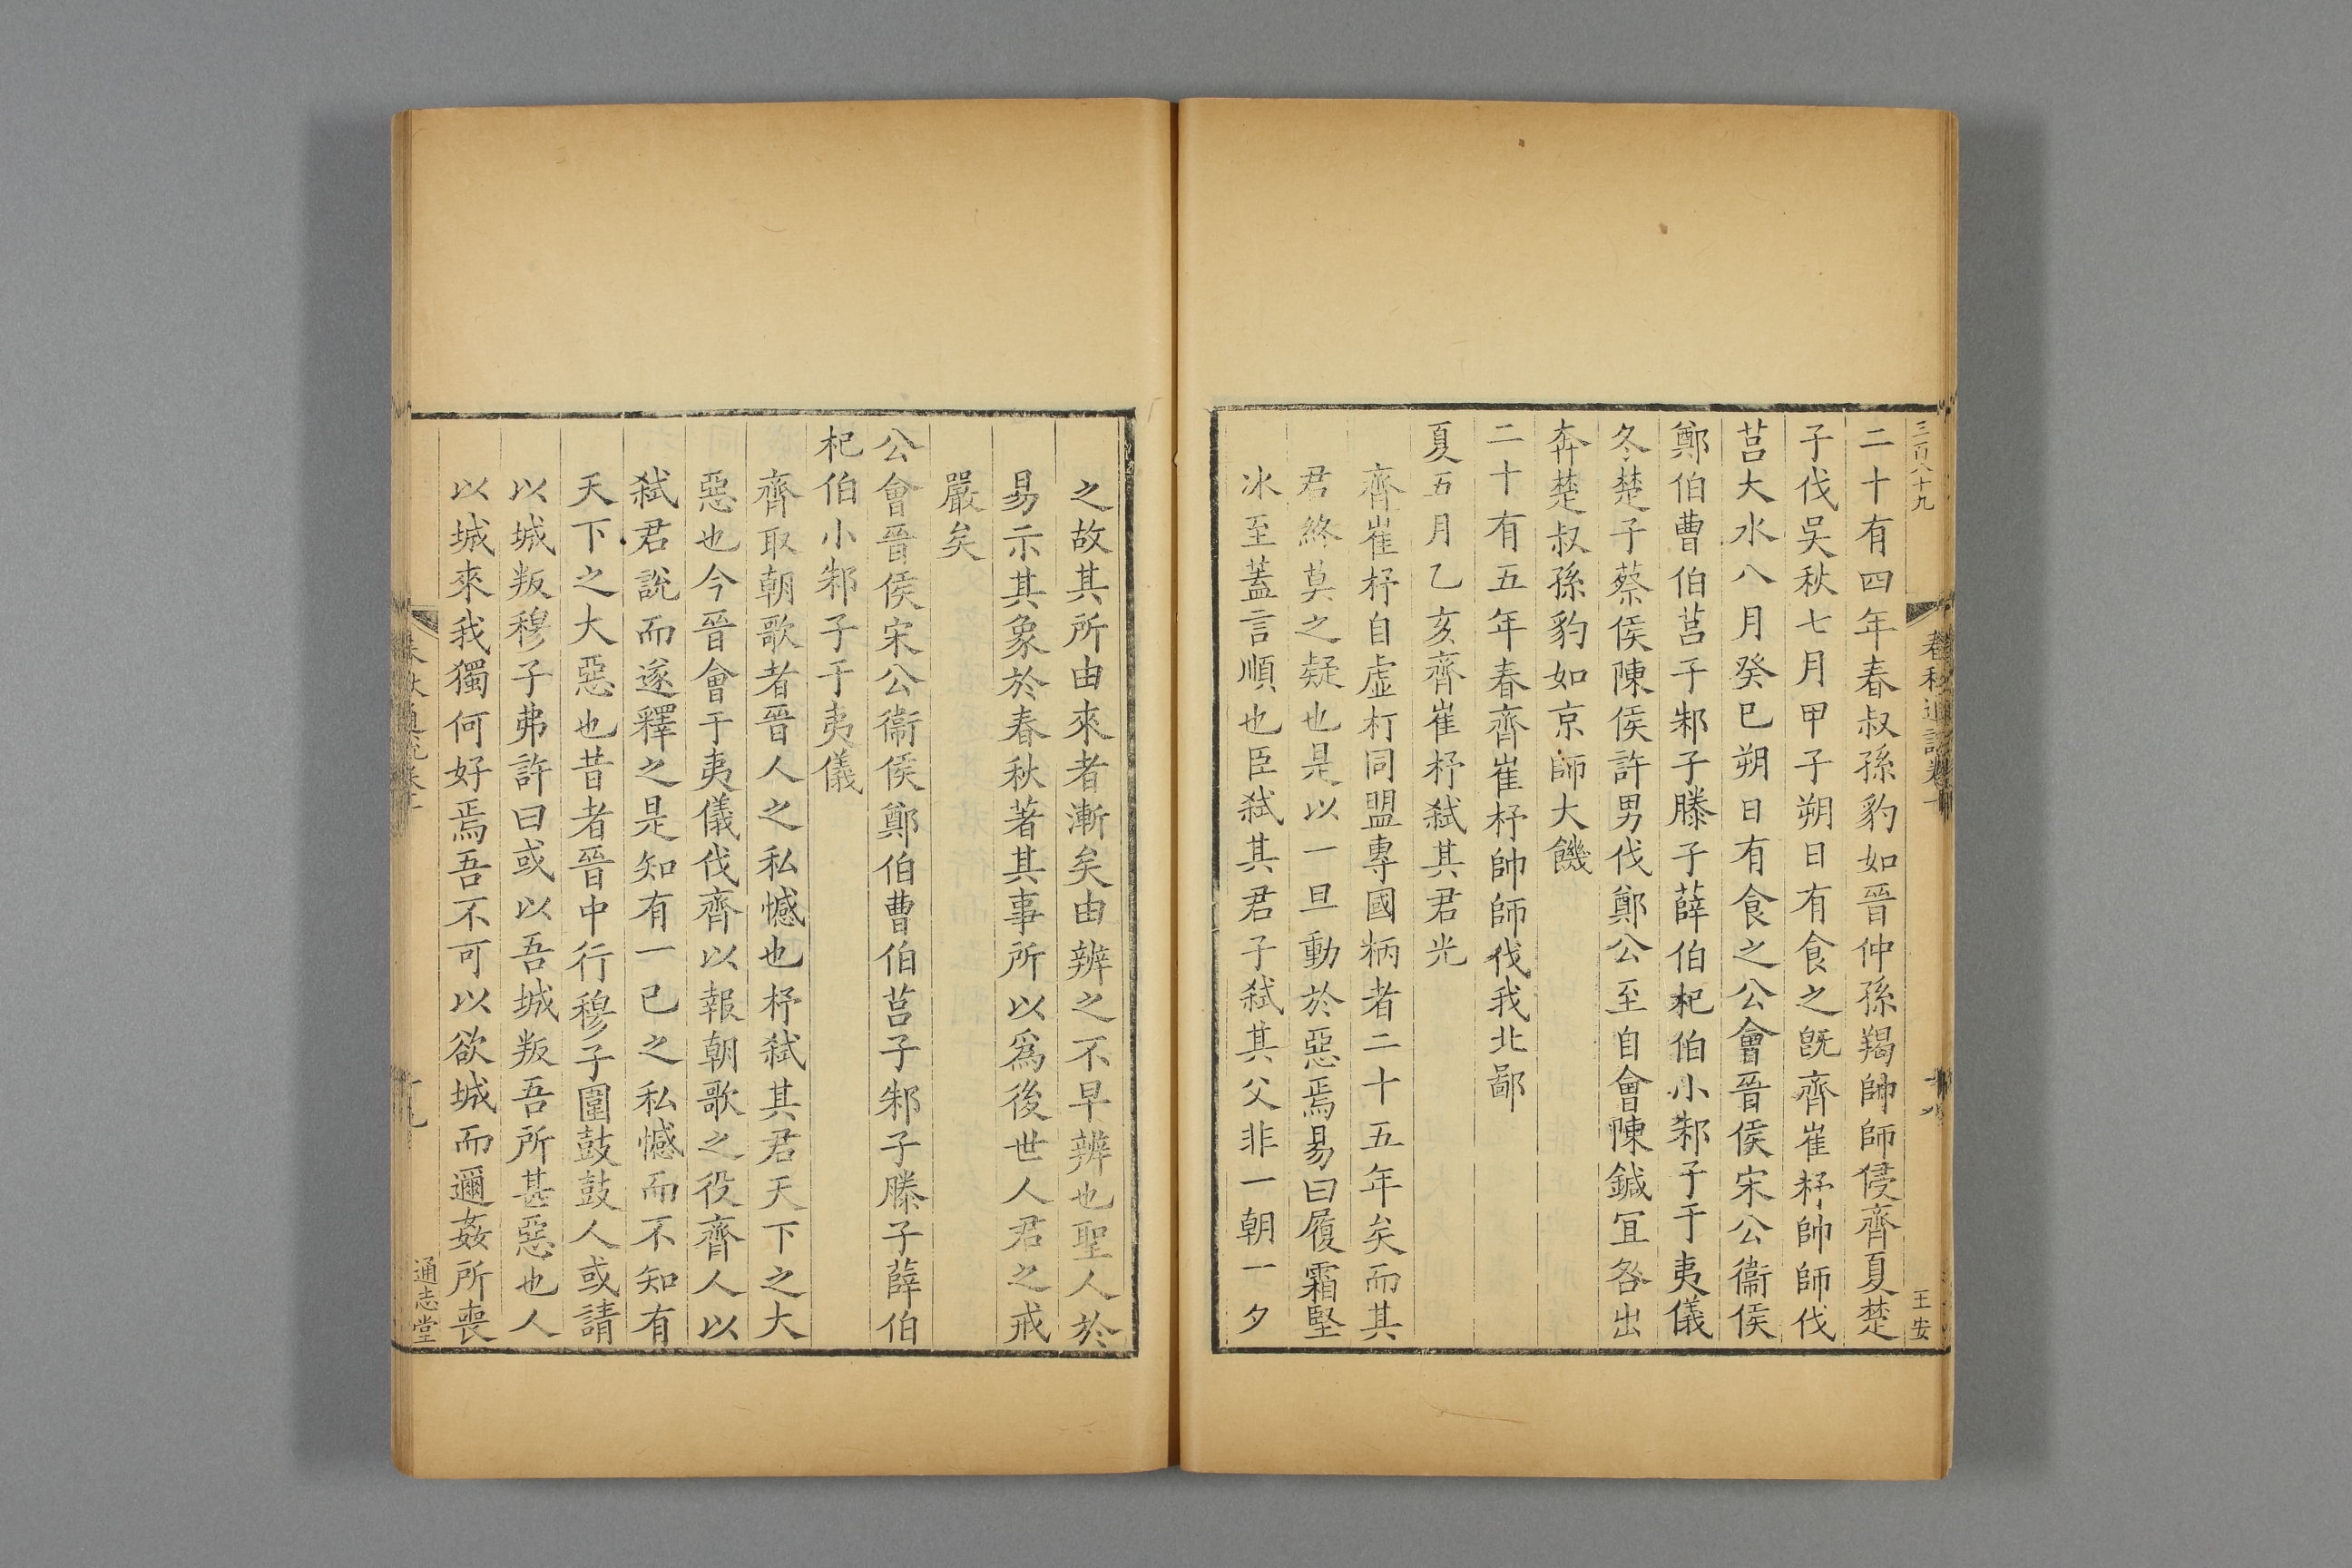 三百八十九
王安
二十有四年春叔孫豹如晉仲孫羯帥師侵齊夏楚
子伐吳秋七月甲子朔日有食之旣齊崔杼帥師伐
莒大水八月癸巳朔日有食之公會晉侯宋公衞侯
鄭伯曹伯莒子邾子滕子薛伯杞伯小邾子于夷儀
冬楚子蔡侯陳侯許男伐鄭公至自會陳鍼宜咎出
奔楚叔孫豹如京師大饑
二十有五年春齊崔杼帥師伐我北鄙
夏五月乙亥齊崔杼弒其君光
齊崔杼自虛朾同盟專國柄者二十五年矣而其
君終莫之疑也是以一旦動於惡焉易曰履霜堅
冰至蓋言順也臣弒其君子弒其父非一朝一夕
之故其所由來者漸矣由辨之不早辨也聖人於
易示其象於春秋著其事所以爲後世人君之戒
嚴矣
公會晉侯宋公衞侯鄭伯曹伯莒子邾子滕子薛伯
杞伯小邾子于夷儀
齊取朝歌者晉人之私憾也杼弒其君天下之大
惡也今晉會于夷儀伐齊以報朝歌之役齊人以
弒君說而遂釋之是知有一已之私憾而不知有
天下之大惡也昔者晉中行穆子圍鼓鼓人或請
以城叛穆子弗許曰或以吾城叛吾所甚惡也人
以城來我獨何好焉吾不可以欲城而邇姦所喪
通志堂